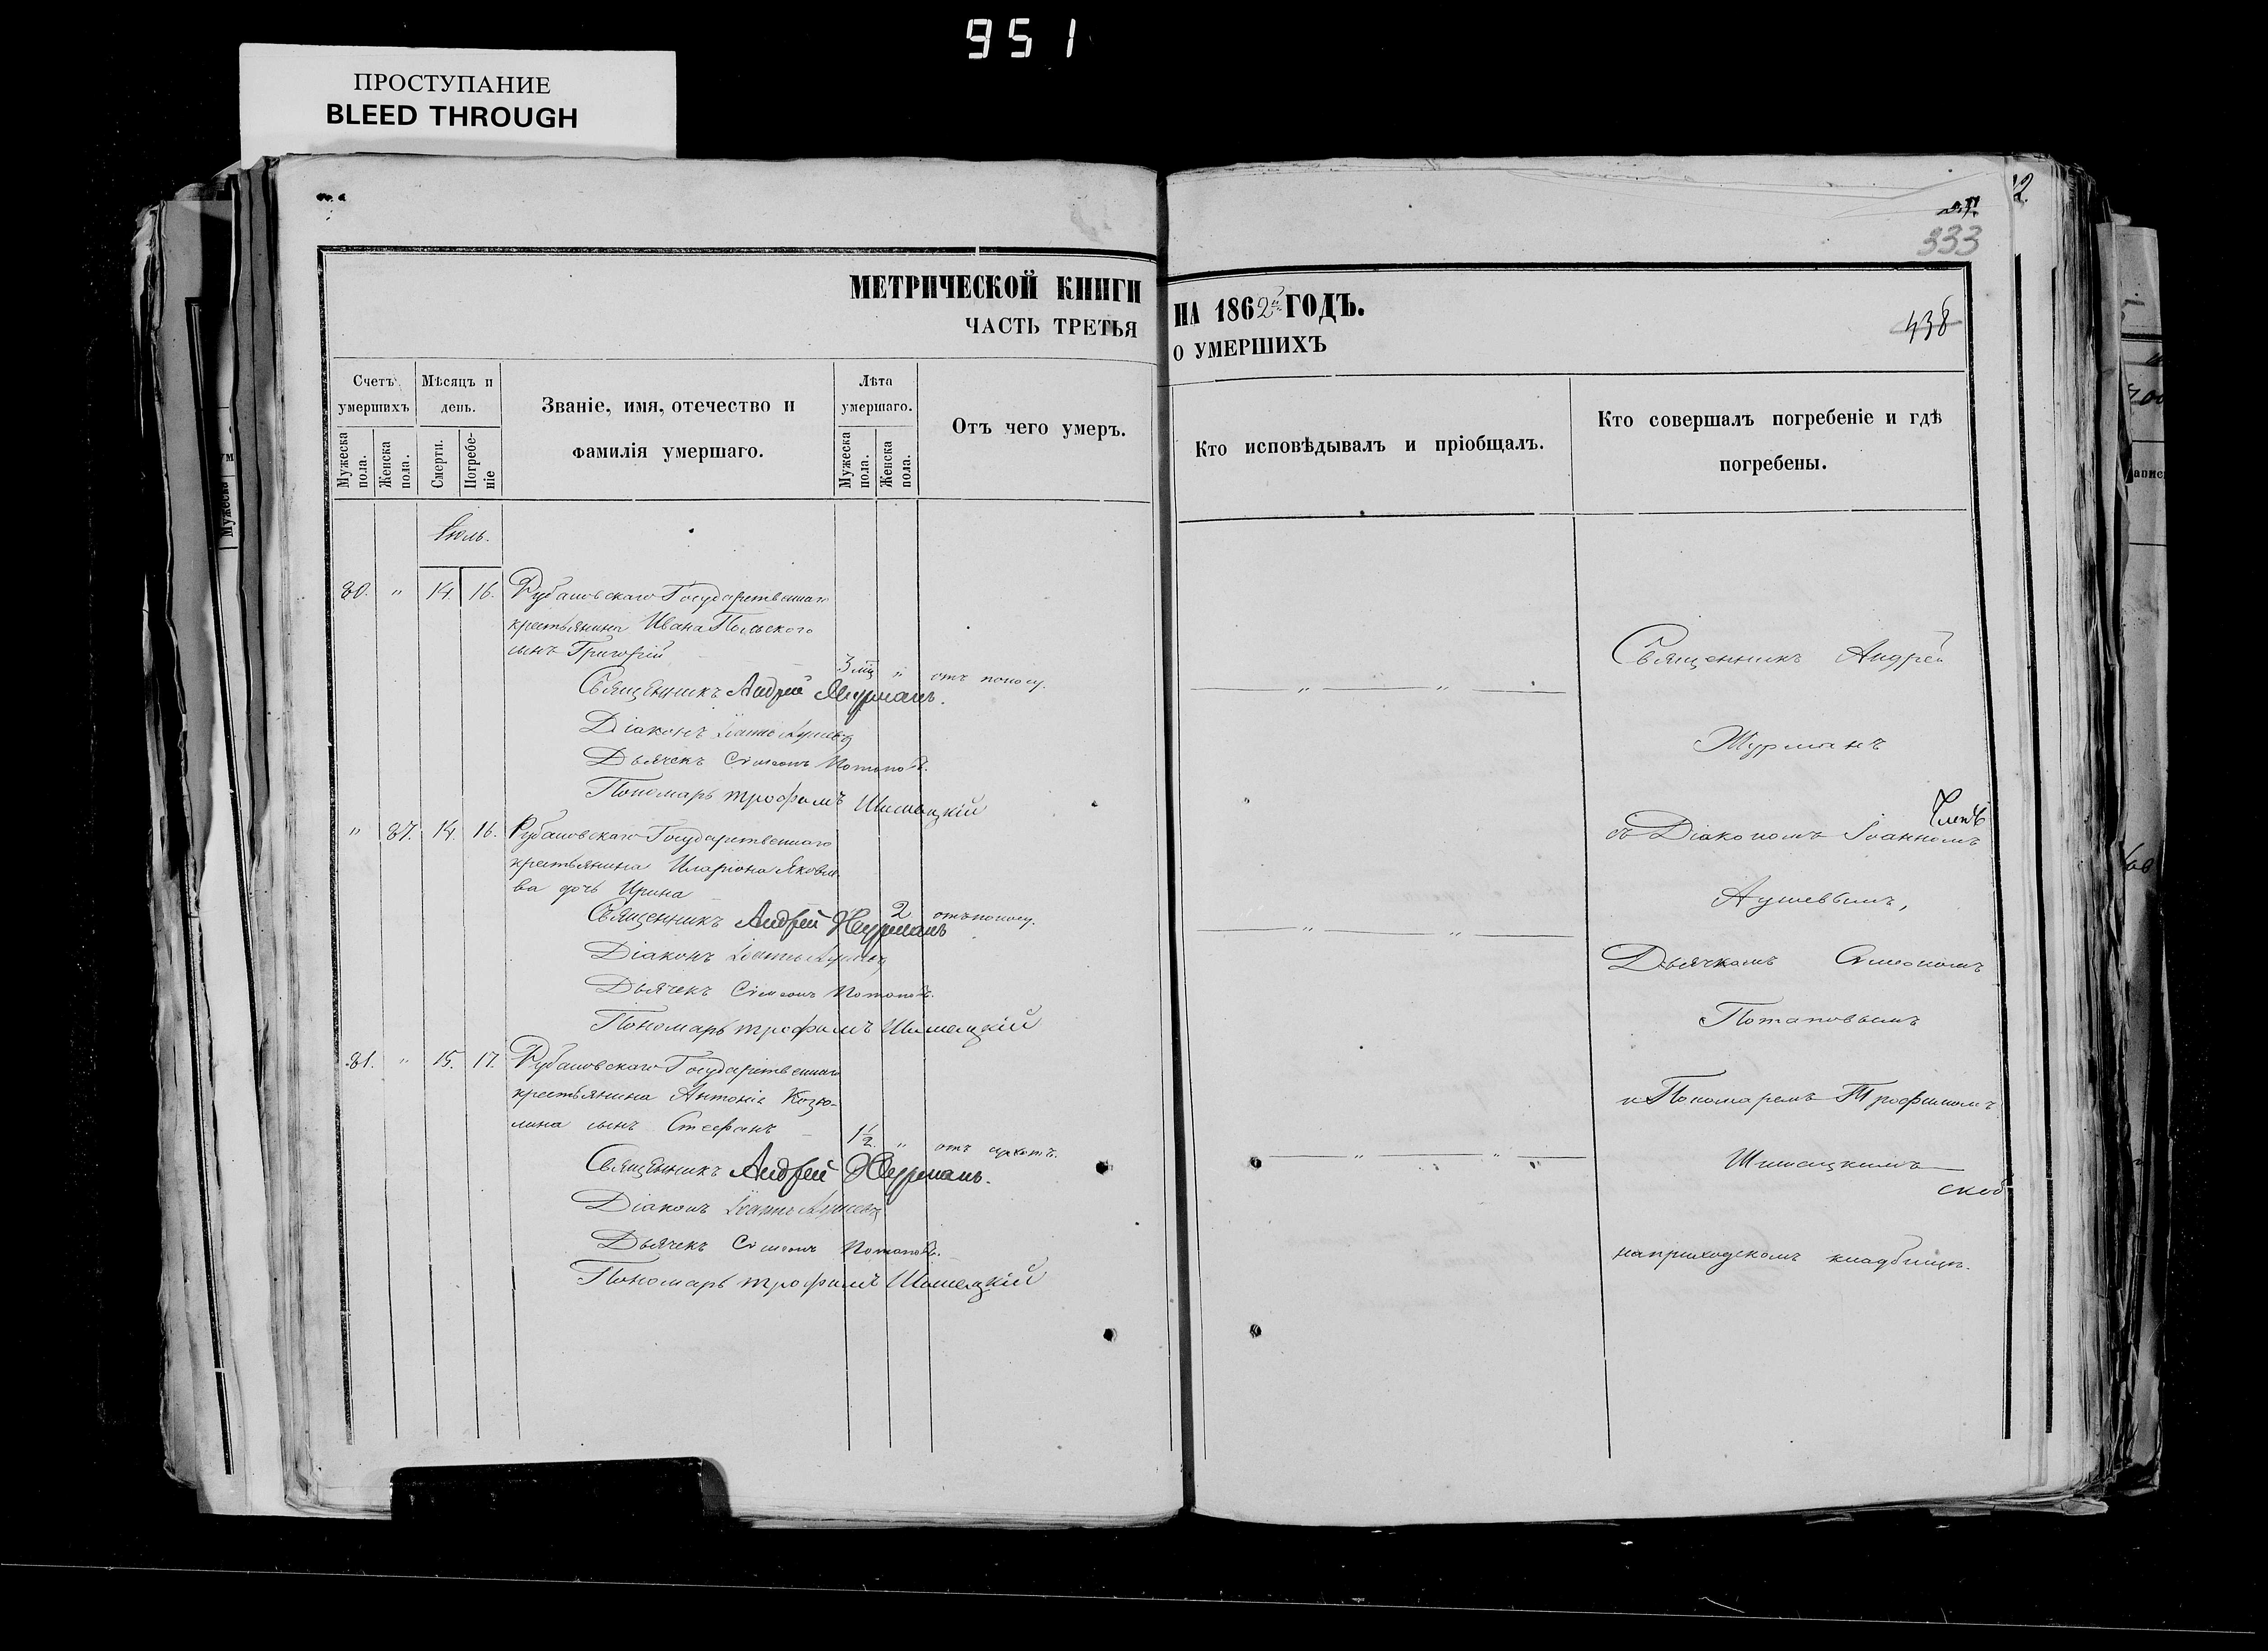 951
ПРОСТУПАНИЕ
BLEED THROUGH
333
МЕТРИЧЕСКОЙ КНИГИ НА 1862й ГОДЪ.
438
ЧАСТЬ ТРЕТЬЯ О УМЕРШИХЪ
Счетъ умершихъ
Мужеска пола.
Женска пола.
Мѣсяцъ и день.
Смерти.
Погребеніе
Званіе, имя, отечество и фамилія умершаго.
Лѣта умершаго.
Мужеска пола.
Женска пола.
Отъ чего умеръ.
Кто исповѣдывалъ и пріобщалъ.
Кто совершалъ погребеніе и гдѣ погребены.
Іюль.
80. " 14. 16. Рубановскаго Государственнаго
крестьянина Ивана
сынъ Григорій 3 " отъ поносу.
Священникъ Андрей Журманъ.
Діаконъ Іоаннъ Аушевъ
Дьячекъ Симеонъ Потаповъ.
Пономарь Трофимъ Шимацкій
" 87. 14. 16. Рубановскаго Государственнаго
крестьянина Иларіона Яковле-
ва дочь Ирина 2 отъ поносу.
Священникъ Андрей Журманъ
Діаконъ Іоаннъ Аушевъ
Дьячекъ Симеонъ Потаповъ.
Пономарь Трофимъ Шимацкій
81. " 15. 17. Рубановскаго Государственнаго
крестьянина Антонія Козю-
лина сынъ Стефанъ 1½ " отъ сухотъ.
Священникъ Андрей Журманъ.
Діаконъ Іоаннъ Аушевъ
Дьячекъ Симеонъ Потаповъ.
Пономарь Трофимъ Шимацкій
Священникъ Андрей
Журманъ
съ Діакономъ Іоанномъ
Аушевымъ,
Дьячкомъ Симеономъ
Потаповымъ
и Пономаремъ Трофимомъ
Шимацкимъ
на приходскомъ кладбищѣ.